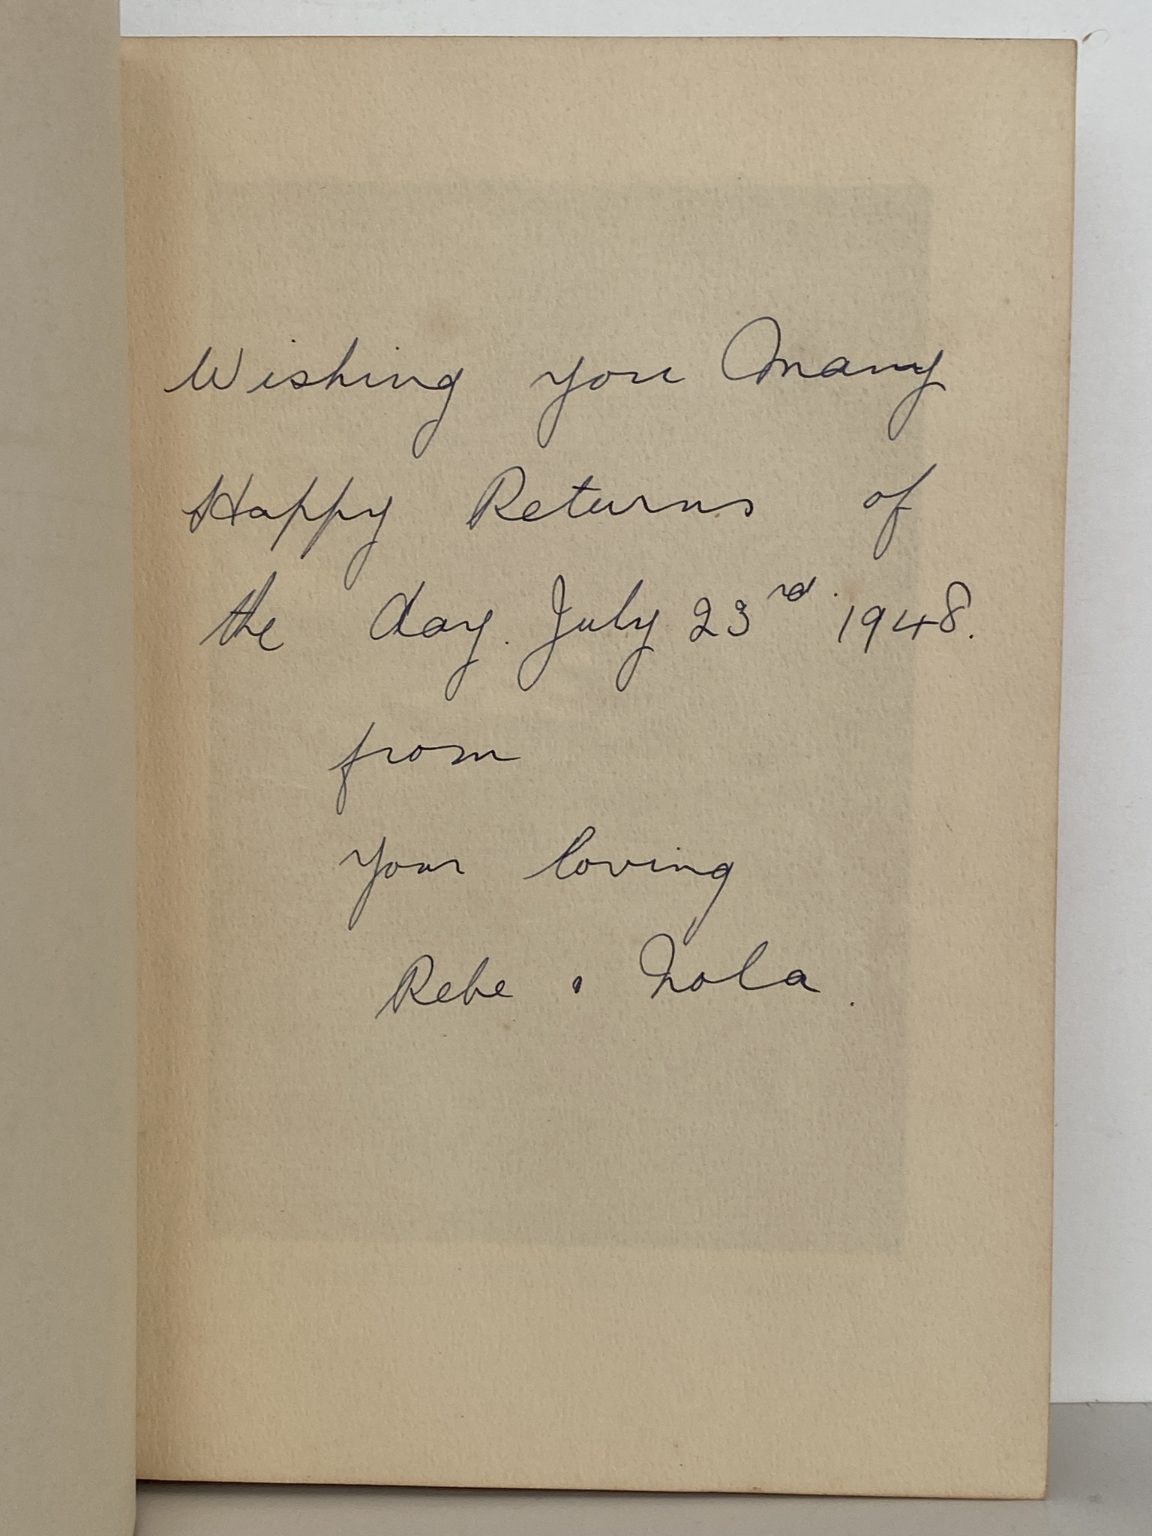 Wishing you Many
Happy Returns of
the day. July 23rd. 1948.
from
your loving
Rebe . Nola.